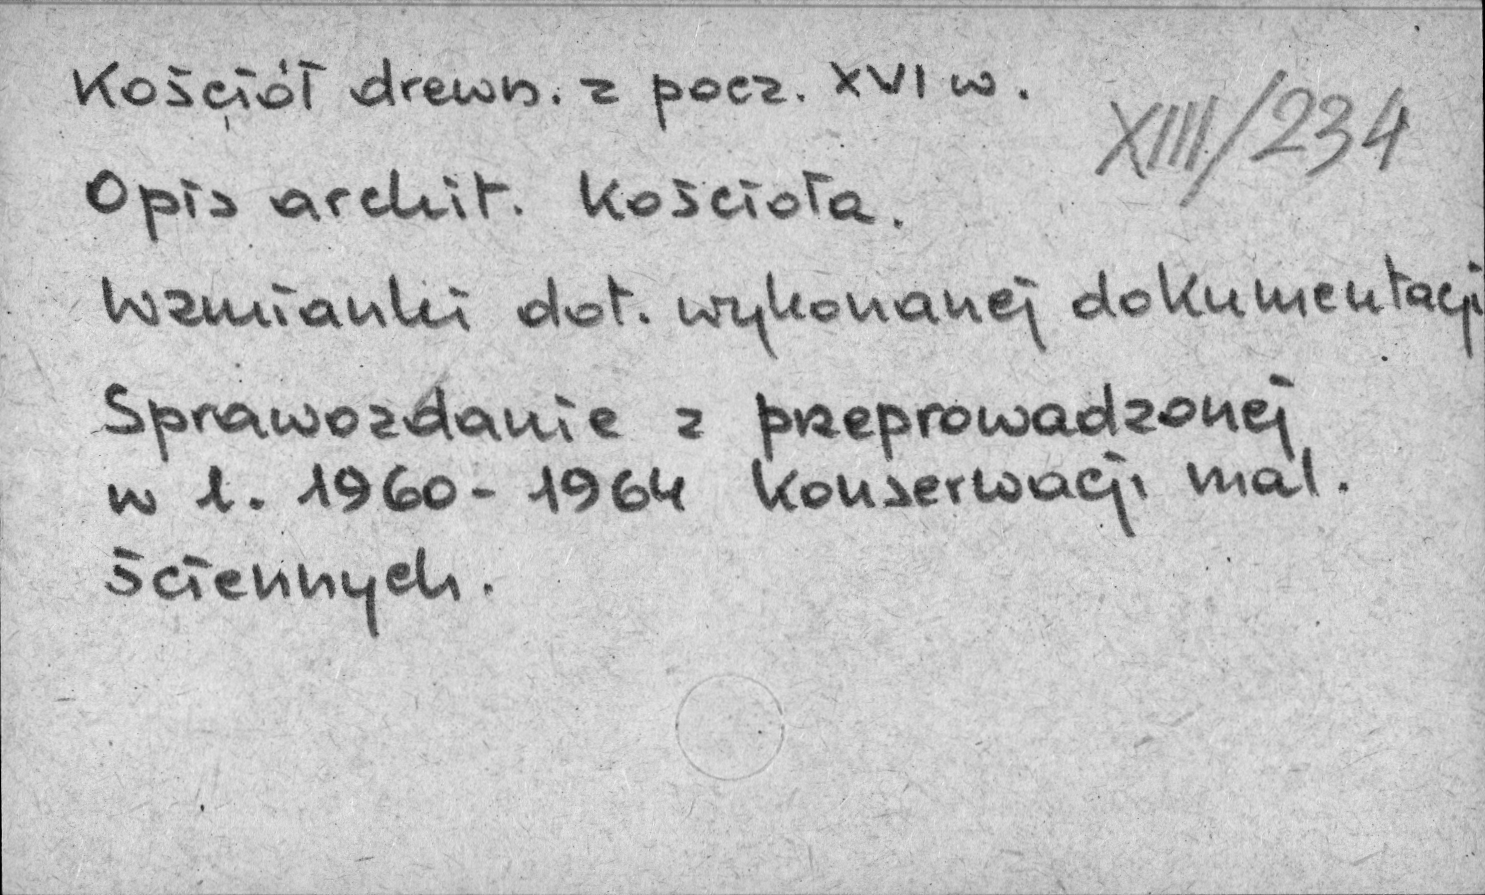 Kościół drewn. z pocz. XVI w.
XIII/234
Opis archit. Kościoła.
Wzmianki dot. wykonanej dokumentacji
Sprawozdanie z przeprowadzonej
w l. 1960-1964 Konserwacji mal.
ściennych.